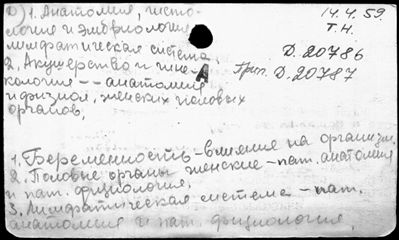 D) 1. Анатомия, гисто-
логия и эмбриология
лимфатическая система.
2. Акушерство и гине-
кология -- анатомия
и физиол. женских половых
органов.
14.4.59.
Т.Н.
D.20786
A
Прил. D.20787
1. Беременность - влияния на организм.
2. Половые органы женские - пат. анатомия
и пат. физиология.
3. Лимфатическая система - пат.
анатомия и пат. физиология.